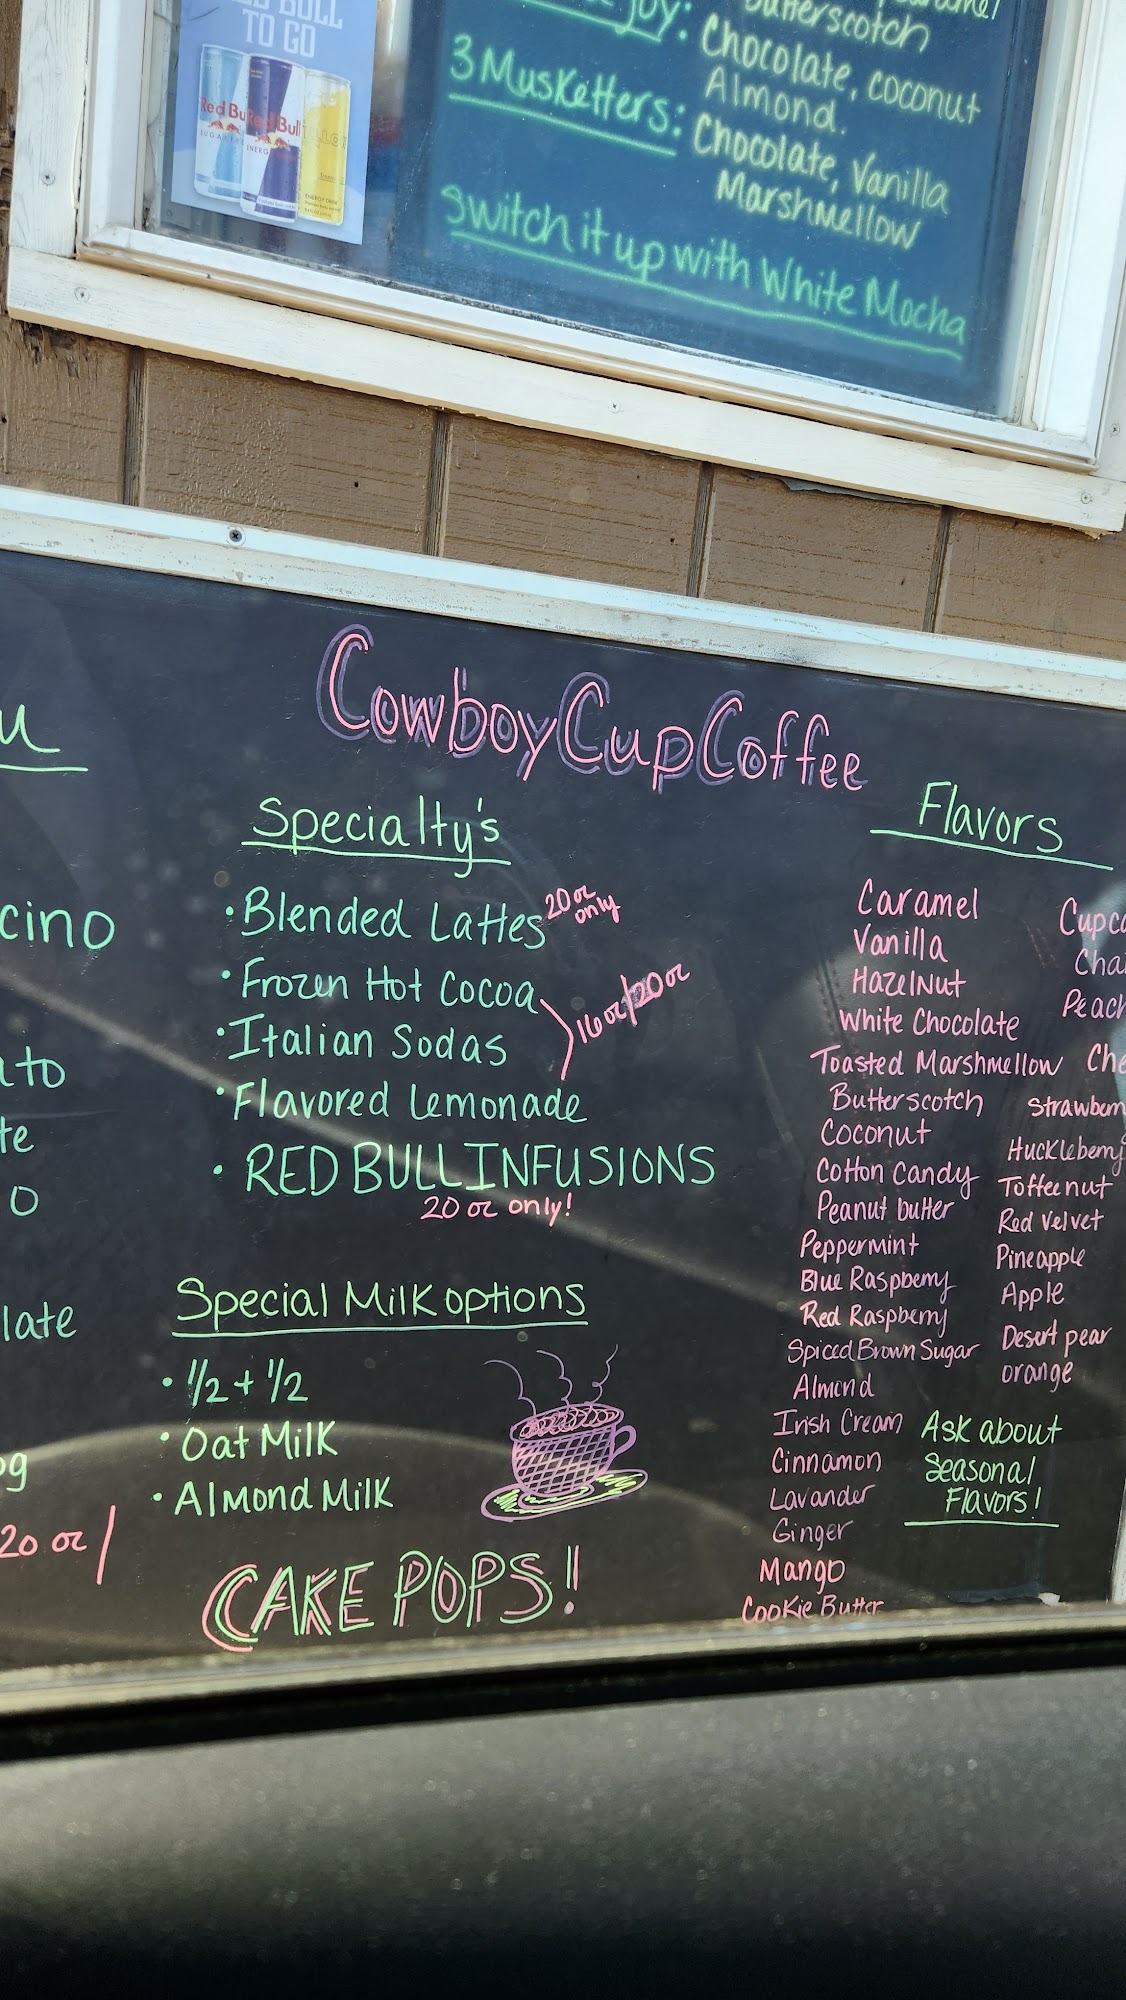 RED BULL
TO GO
Red Bull
Red Bull
SUGAR
ENERGY DRINK
Butterscotch
Joy: Chocolate, coconut
Almond.
3 Musketters: Chocolate, Vanilla
Marshmellow
Switch it up with White Mocha
CowboyCupCoffee
Specialty's
• Blended Lattes 20 oz only
• Frozen Hot Cocoa
• Italian Sodas
16 oz/20 oz
• Flavored Lemonade
• RED BULL INFUSIONS
20 oz only!
Special Milk options
• 1/2 + 1/2
• Oat Milk
• Almond Milk
CAKE POPS!
20 oz
Flavors
Caramel
Vanilla
Hazelnut
White Chocolate
Toasted Marshmellow
Butterscotch
Coconut
Cotton Candy
Peanut butter
Peppermint
Blue Raspberry
Red Raspberry
Spiced Brown Sugar
Almond
Irish Cream
Cinnamon
Lavander
Ginger
Mango
Cookie Butter
Peach
Strawberr
Huckleberry
Toffeenut
Red Velvet
Pineapple
Apple
Desert pear
orange
Ask about
Seasonal
Flavors!